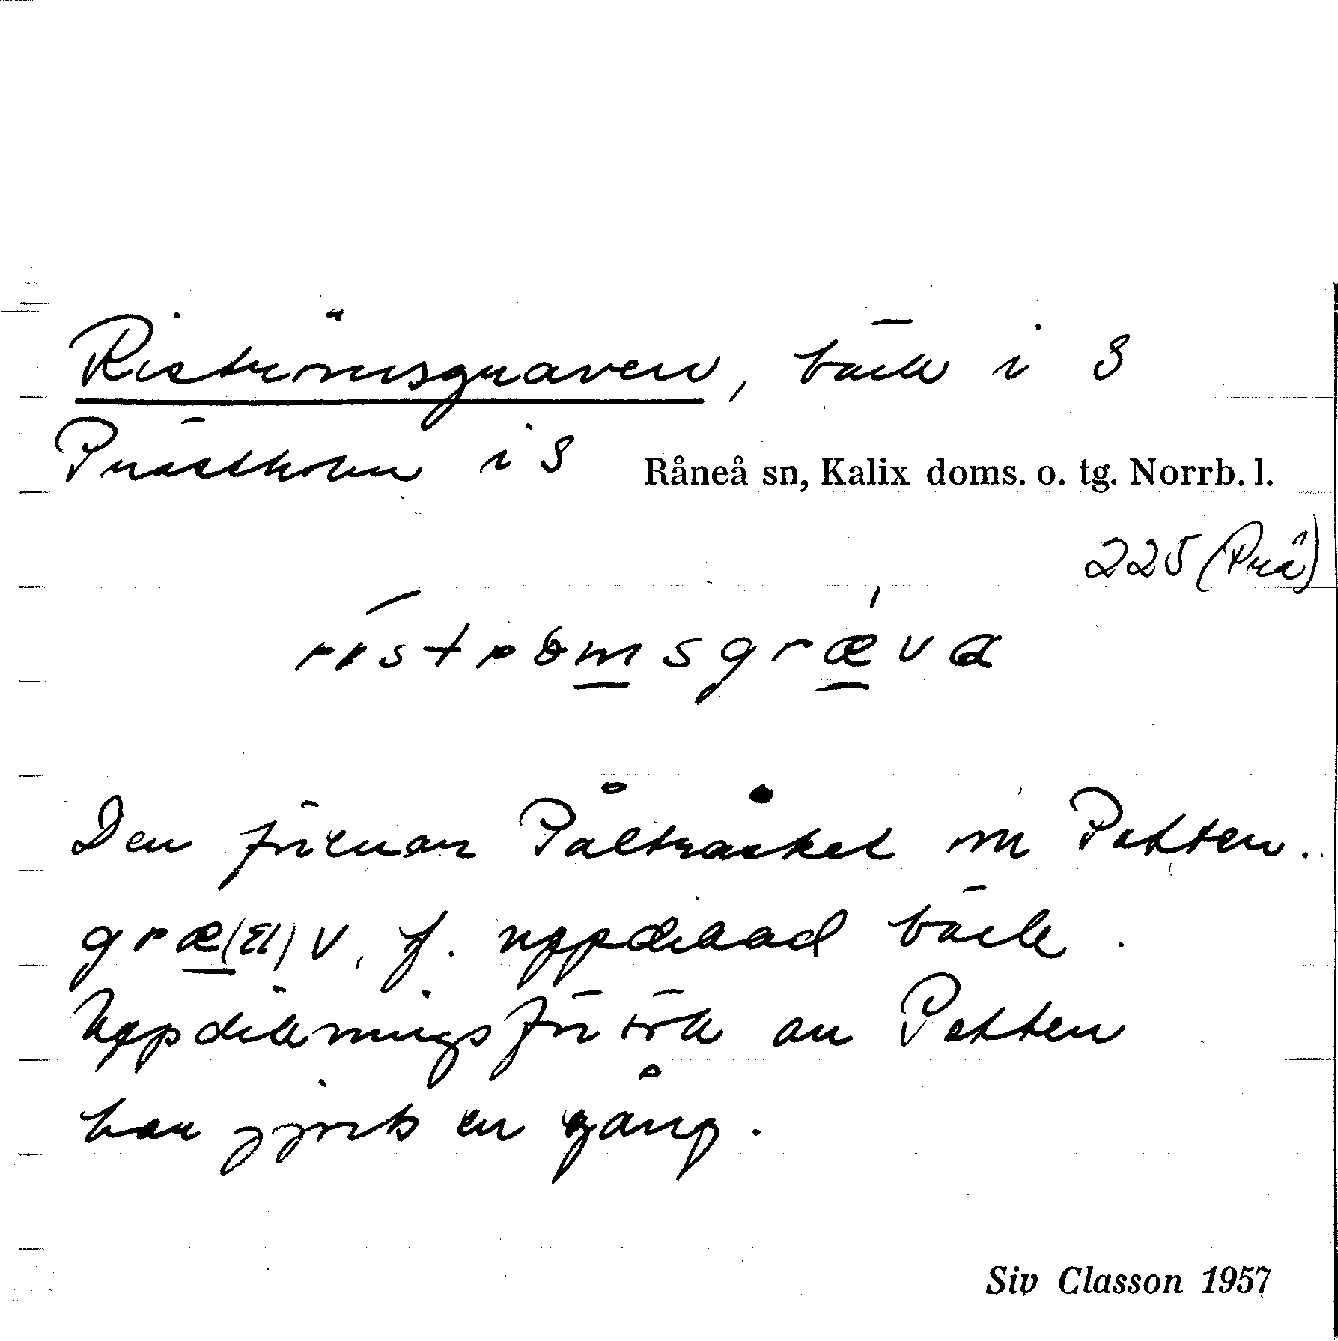 Riströmsgraven, bäck i S
Prästholm i S Råneå sn, Kalix doms. o. tg. Norrb. l.
225 (Prä)
riströmsgræva
Den förenar Pålträsket m Potten.
græ(ει)v, f. uppdikad bäck.
Uppdikningsförsök av Potten
har gjorts en gång.
Siv Classon 1957